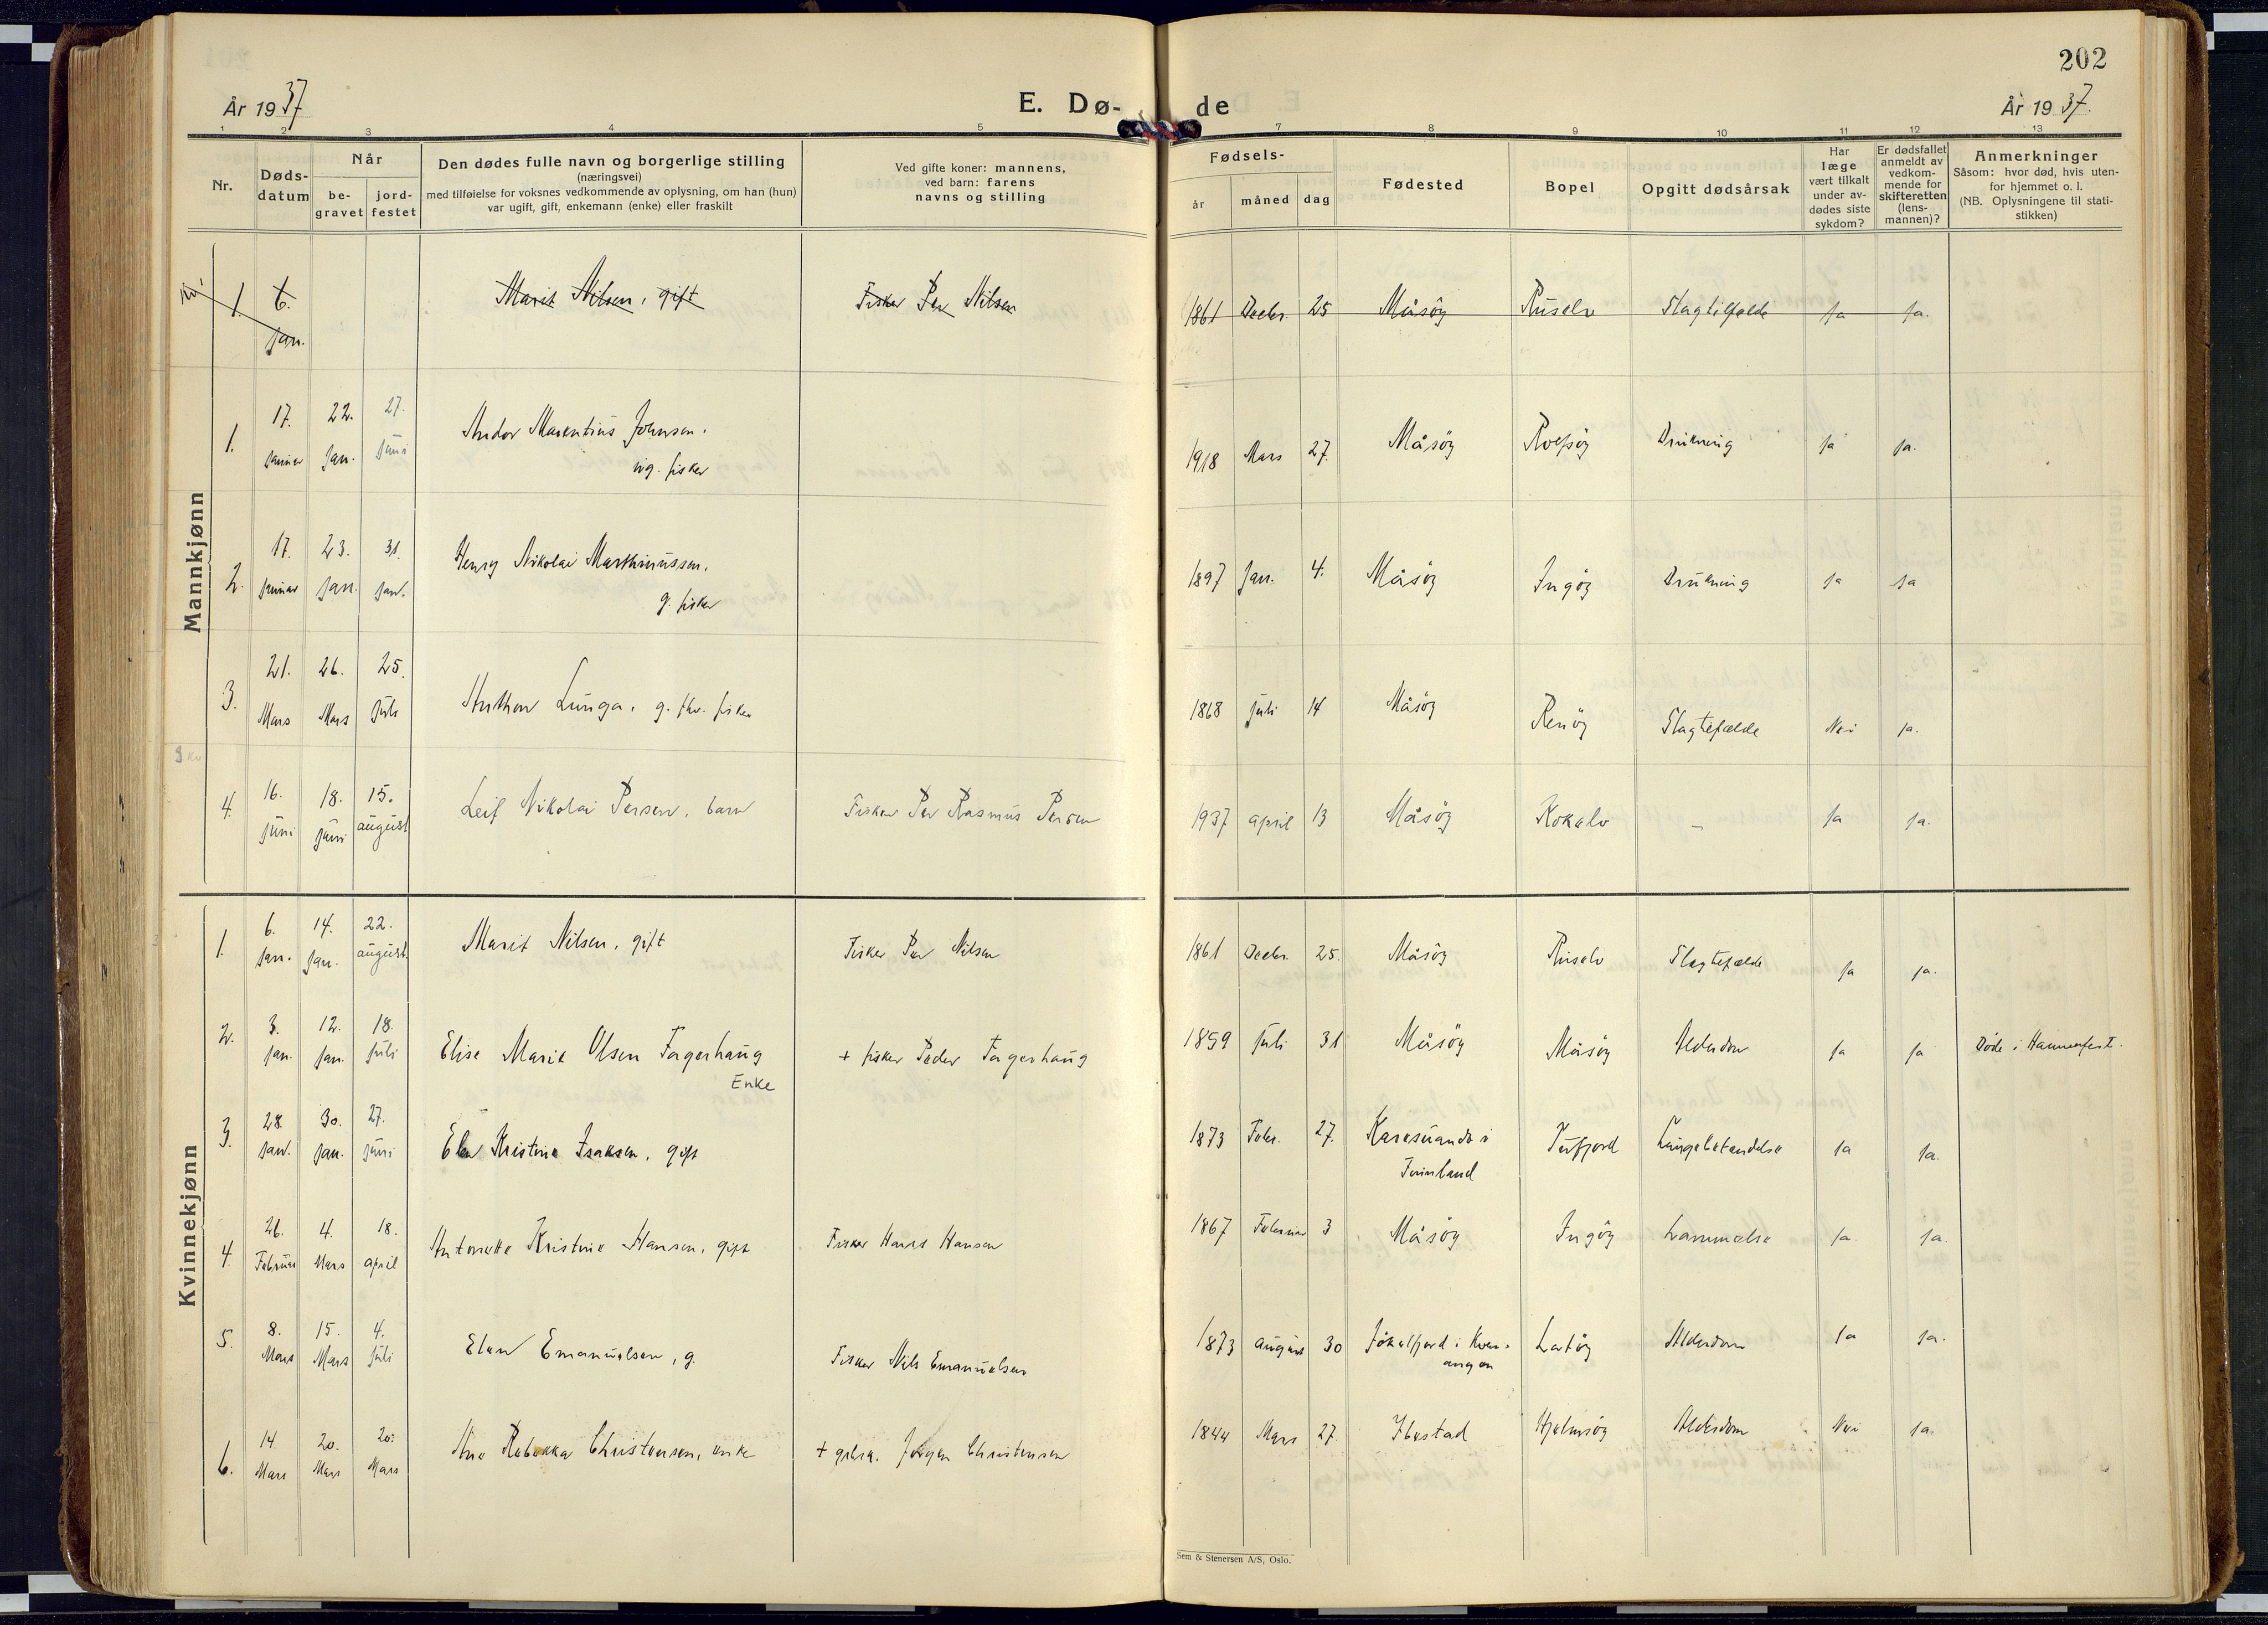 202
År 1937
E. Dø-
de
År 1937.
1 2 3 4 5 7 8 9 10 11 12 13
Nr.
Døds-
datum
Når
be-
gravet
jord-
festet
Den dødes fulle navn og borgerlige stilling
(næringsvei)
med tilføielse for voksnes vedkommende av oplysning, om han (hun)
var ugift, gift, enkemann (enke) eller fraskilt
Ved gifte koner: mannens,
ved barn: farens
navns og stilling
Fødsels-
år
måned
dag
Fødested
Bopel
Opgitt dødsårsak
Har
læge
vært tilkalt
under av-
dødes siste
sykdom?
Er dødsfallet
anmeldt av
vedkom-
mende for
skifteretten
(lens-
mannen)?
Anmerkninger
Såsom: hvor død, hvis uten-
for hjemmet o. l.
(NB. Oplysningene til stati-
stikken)
1. 6. Jan. Marit Nilsen, gift Fisker Per Nilsen 1861 Decbr. 25 Måsöy Ruselv Slagtilfælde Ja Ja.
Mannkjønn
1. 17. Januar 22. Jan. 27. Juni Andor Marentius Johnsen. 1918 Mars 27. Måsöy Rolfsöy Drukning Ja Ja.
ug. fisker
2. 17. Januar 23. Jan. 31. Jan. Henry Nikolai Marthinussen. 1897 Jan. 4. Måsöy Ingöy Drukning Ja Ja
g. fisker
3. 21. Mars 26. Mars 25. Juli Anthon Lunga, g. fhv. fisker 1868 Juli 14 Måsöy Renöy Slagtefælde Nei Ja.
4. 16. Juni 18. Juni 15. august Leif Nikolai Persen, barn Fisker Per Rasmus Persen 1937 april 13 Måsöy Kokelv - Ja Ja.
Kvinnekjønn
1. 6. Jan. 14. Jan. 22. august Marit Nilsen, gift Fisker Per Nilsen 1861 Decbr. 25. Måsöy Ruselv Slagtefælde Ja Ja.
2. 3. Jan. 12. Jan. 18. Juli Elise Marie Olsen Fagerhaug + fisker Peder Fagerhaug 1859 Juli 31 Måsöy Måsöy Alderdom Ja Ja Döde i Hammerfest.
Enke
3. 28. Jan. 30. Jan. 27. Juni Elen Kristine Isaksen, gift 1873 Febr. 27. Karesuando i Tufjord Lungebetændelse Ja Ja.
Finnland
4. 26. Februar 4. Mars 18. april Antonette Kristine Hansen, gift Fisker Hans Hansen 1867 Februar 3 Måsöy Ingöy Lammelse Ja Ja.
5. 8. Mars 15. Mars 4. Juli Elen Emanuelsen, g. Fisker Nils Emanuelsen 1873 august 30 Jökelfjord i Kvæn- Latöy Alderdom Ja Ja.
angen
6. 14. Mars 20. Mars 20. Mars Ane Rebekka Christensen, enke + grbr. Jörgen Christensen 1844 Mars 27. Ibestad Hjelmsöy Alderdom Nei Ja.
Sem & Stenersen A/S, Oslo.